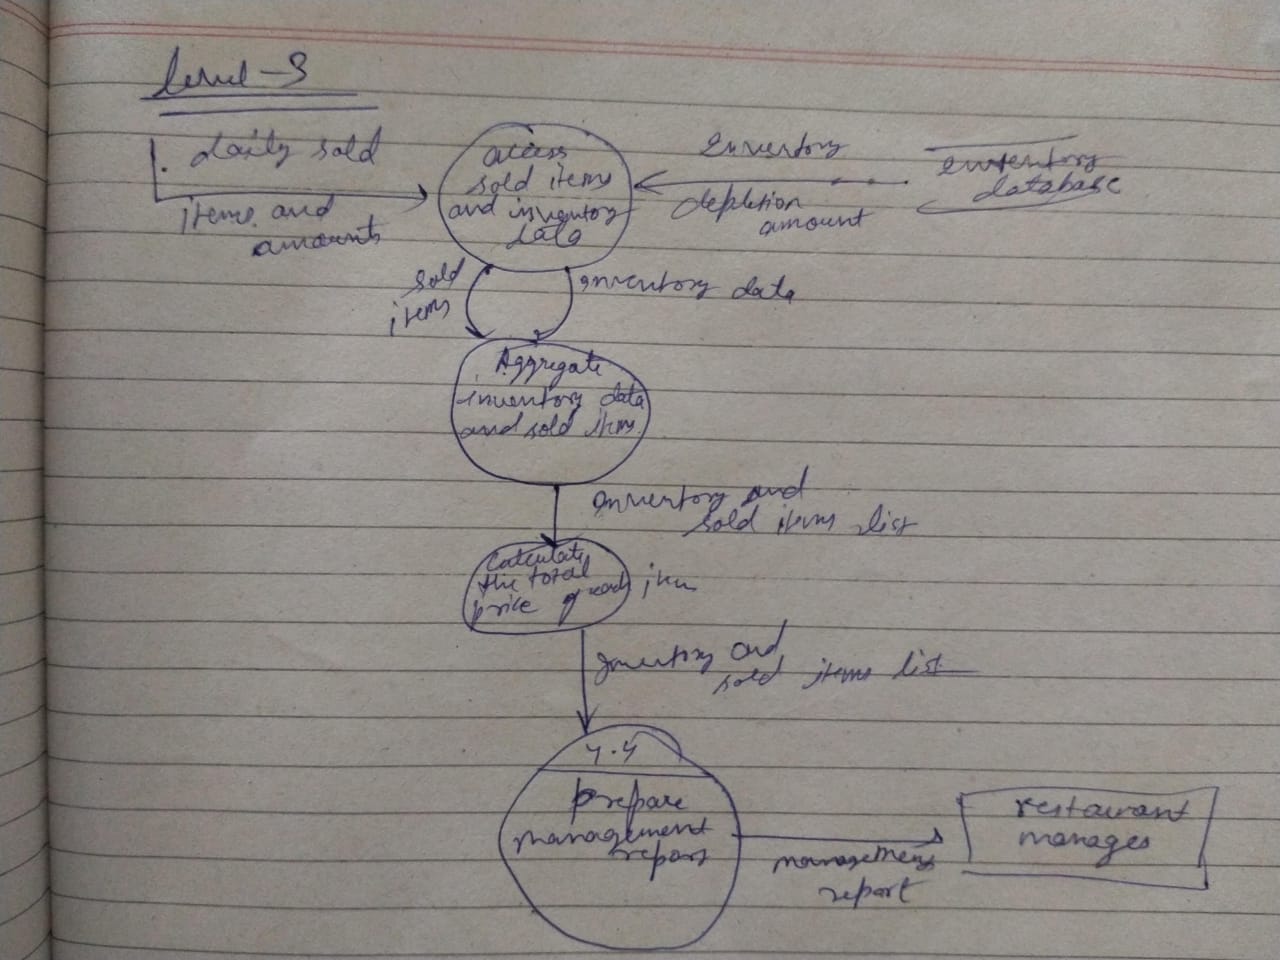 level-3
daily sold
items and
amounts
access
sold items
and inventory
data
Inventory
depletion
amount
inventory
database
sold
items
Inventory data
Aggregate
inventory data
and sold items
Inventory and
sold items list
Calculate
the total
price of each item
Inventory and
sold items list
4.4
prepare
management
report
management
report
restaurant
manages